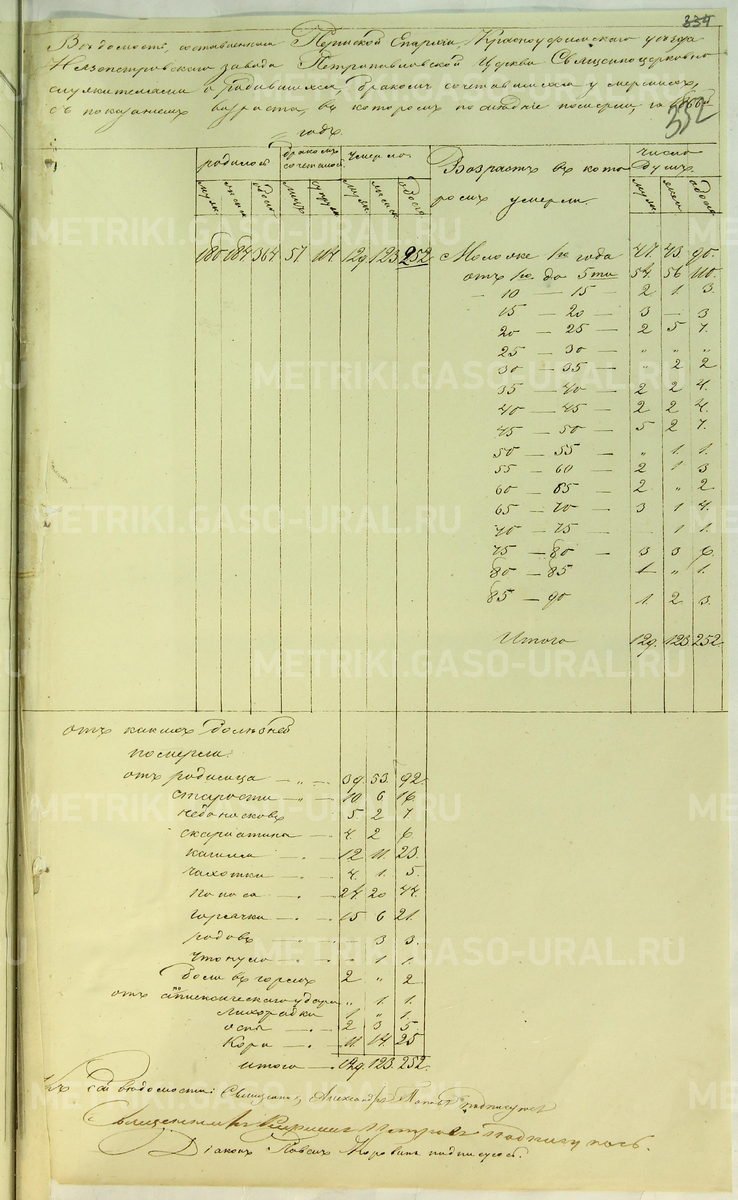 334
332
Ведомость, составленная Пермской Епархіи, Красноуфимскаго уезда
Нязепетровскаго завода Петропавловской Церкви Священноцерковно
служителями о родившихся, бракомъ сочетавшихся и умершихъ,
съ показаніемъ возраста, въ которомъ последніе померли, за
годъ.
родилось бракомъ сочеталось умерло Возрастъ въ кото число душъ.
муж. женск. обоего муж. женск. обоего ромъ умерли муж. жен. обоего
180 184 364 57 129 123 252 Моложе 1го года 47. 43. 90.
отъ 1го до 5ти 54. 56 110.
— 10 — 15 — 2 1 3.
15 — 20 — 3 — 3
20 — 25 — 2 5 7.
25 — 30 — " " "
30 — 35 — " 2 2
35 — 40 — 2 2 4.
40 — 45 — 2 2 4.
45 — 50 — 5 2 7.
50 — 55 — " 1 1.
55 — 60 — 2 1 3
60 — 65 — 2 " 2
65 — 70 — 3 1 4.
70 — 75 — 1 1.
75 — 80 — 3 3 6.
80 — 85 1 " 1.
85 — 90 1 2 3.
Итого 129. 123 252
отъ какихъ болезней
померли:
отъ родимца 39. 53. 92.
старости 10 6 16.
5 2 7
скарлатина 4. 2 6.
кашля 12 11. 23.
чахотки 4. 1. 5.
поноса 24 20 44.
горячки 15 6 21.
родовъ 3 3.
1 1.
боли въ горле 2 " 2
отъ апоплексическаго удара " 1 1.
лихорадки 1 " 1.
оспы 2 3 5.
Кори 11. 14. 25
итого 129. 123. 252.
Къ сей ведомости: Священникъ Александръ Поповъ подписуюсь
Священникъ Петровъ подписуюсь.
Діаконъ подписуюсь.
METRIKI.GASO-URAL.RU